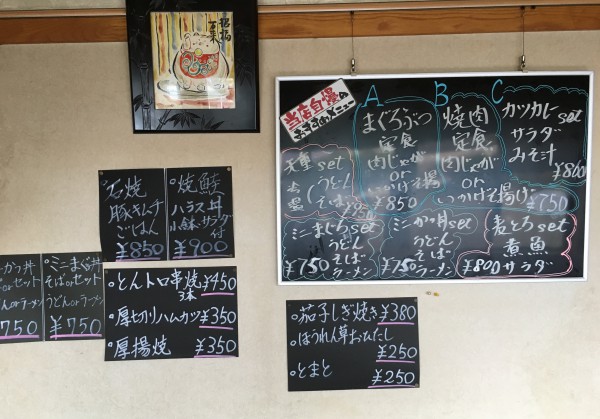 招福
当店自慢の
おすすめメニュー
A
まぐろぶつ
定食
肉じゃが
or
いかげそ揚
¥850
B
焼肉
定食
肉じゃが
or
いかげそ揚げ
¥750
C
カツカレーset
サラダ
みそ汁
¥860
天重set
うどん
そば
ミニまぐろset
うどん
そば
ラーメン
¥750
ミニカツ丼set
うどん
そば
ラーメン
¥750
麦とろset
煮魚
サラダ
¥800
石焼
豚キムチ
ごはん
¥850
焼鮭
ハラス丼
小鉢サラダ付
¥900
カツ丼
orセット
うどんorラーメン
750
ミニまぐろ丼
そばorセット
うどんorラーメン
¥750
とんトロ串焼 ¥450
3本
厚切りハムカツ ¥350
厚揚焼 ¥350
茄子しぎ焼き ¥380
ほうれん草おひたし
¥250
とまと ¥250